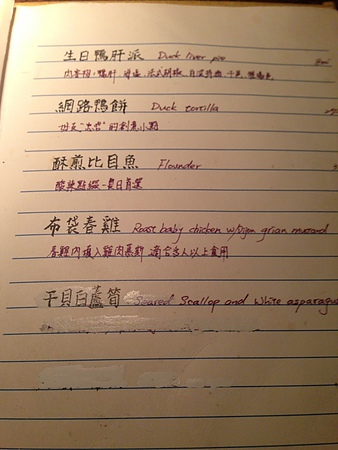 生日鴨肝派 Duck liver pie
內容物：鴨肝
網路鴨餅 Duck tortilla
的創意小點
酥煎比目魚 Flounder
酸辣點綴－夏日首選
布袋春雞 Roast baby chicken w/Dijon grian mustard
春雞內填入雞肉慕斯 適合多人以上食用
干貝白蘆筍 Seared Scallop and White asparagus